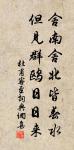 舍南舍北皆春水
但見群鷗日日來
杜甫客至詞典網集